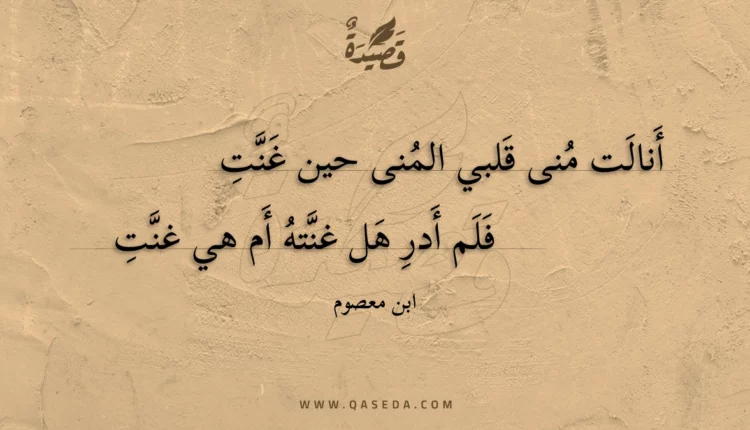 قَصِيدَةٌ
أَنالَت مُنى قَلبي المُنى حين غَنَّتِ
فَلَم أَدرِ هَل غنَّتهُ أَم هي غنَّتِ
ابن معصوم
WWW.QASEDA.COM